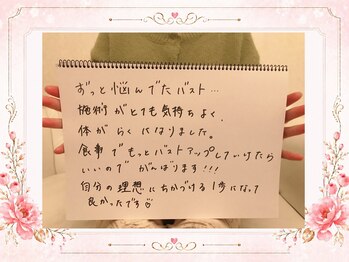 ずっと悩んでたバスト…
施術がとても気持ちよく、
体がらくになりました。
食事でもっとバストアップしていけたら
いいのでがんばります!!!
自分の理想にちかづける1歩になって
良かったです♡